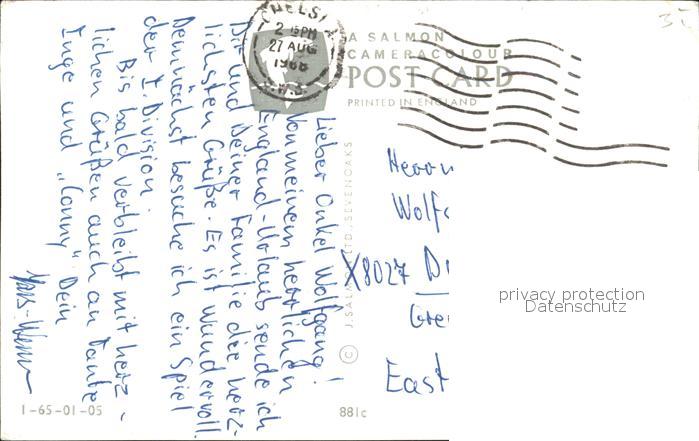 Lieber Onkel Wolfgang!
Von meinem herrlichen
England-Urlaub sende ich
Dir und Deiner Familie die herz-
lichsten Grüße. Es ist wundervoll.
Demnächst besuche ich ein Spiel
der I. Division.
Bis bald verbleibt mit herz-
lichen Grüßen auch an Tante
Inge und "Conny" Dein
Hans-Werner
CHELSEA
2 15PM
27 AUG
1966
A SALMON
CAMERACOLOUR
POST CARD
PRINTED IN ENGLAND
© J. SALMON LTD., SEVENOAKS
Herrn
Wolfg
X8027 D
Gre
East
privacy protection
Datenschutz
1-65-01-05
881c